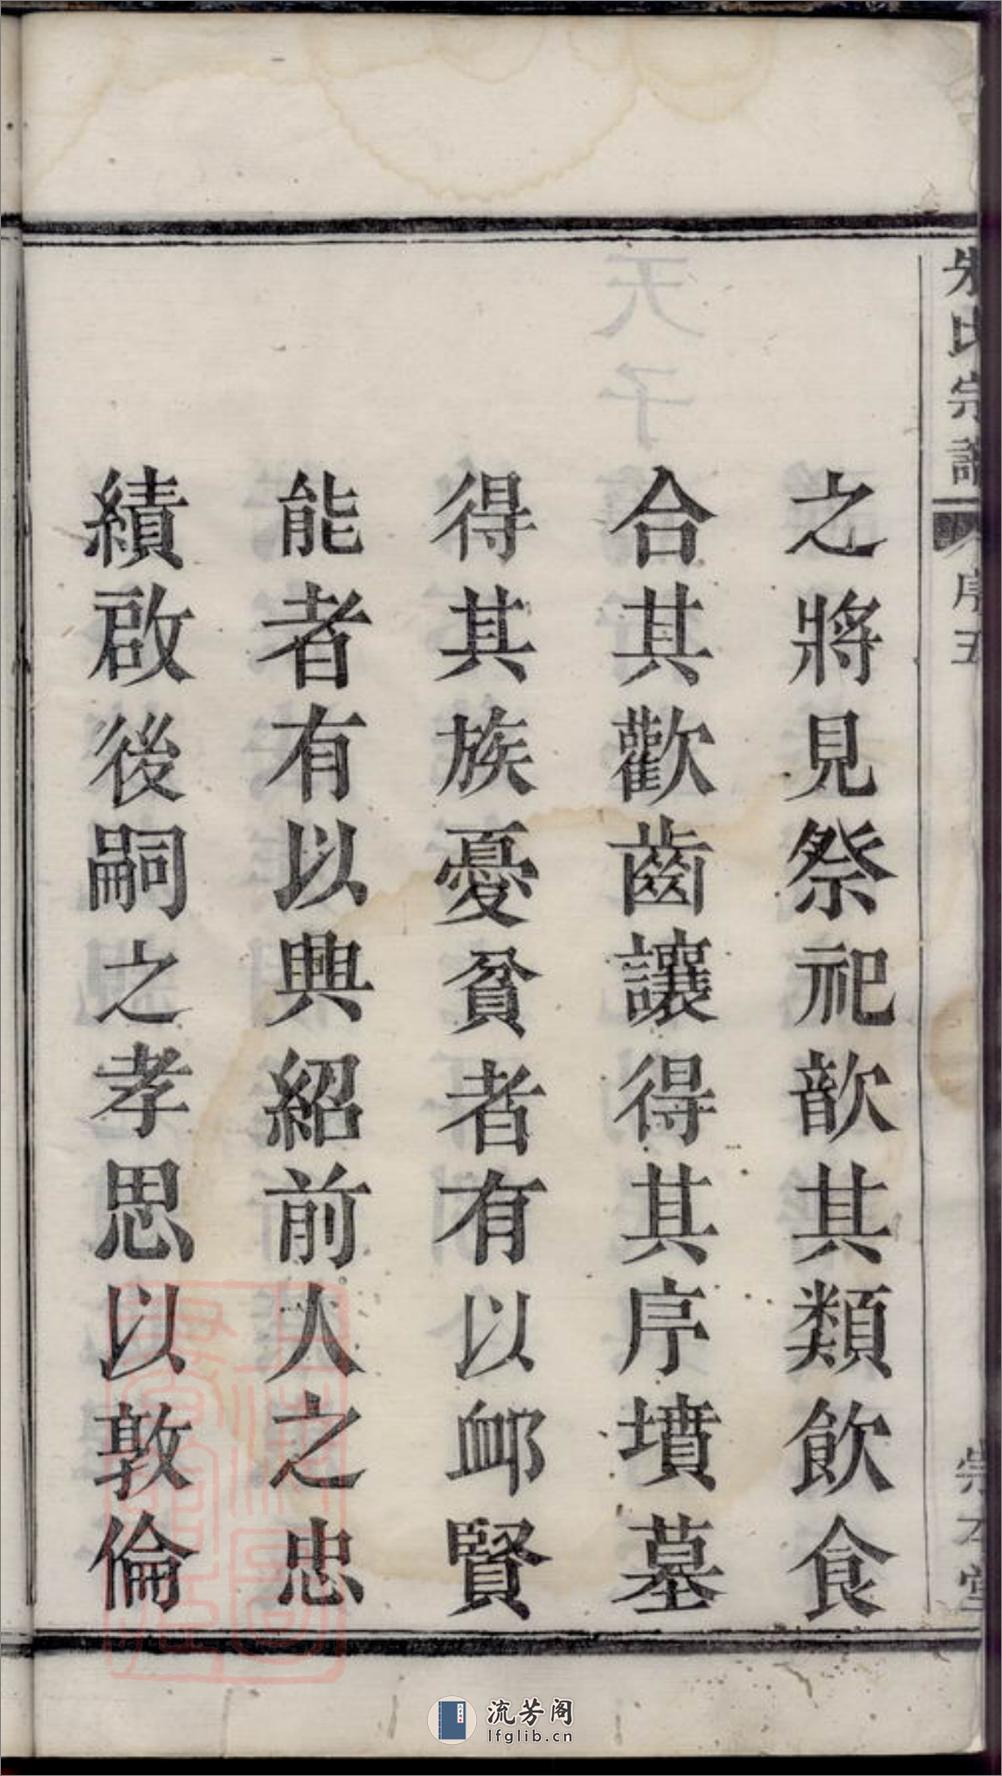 朱氏宗譜
序五
崇本堂
之將見祭祀歆其類飲食
合其歡齒讓得其序墳墓
得其族憂貧者有以卹賢
能者有以興紹前人之忠
績啟後嗣之孝思以敦倫
流芳阁
lfglib.cn